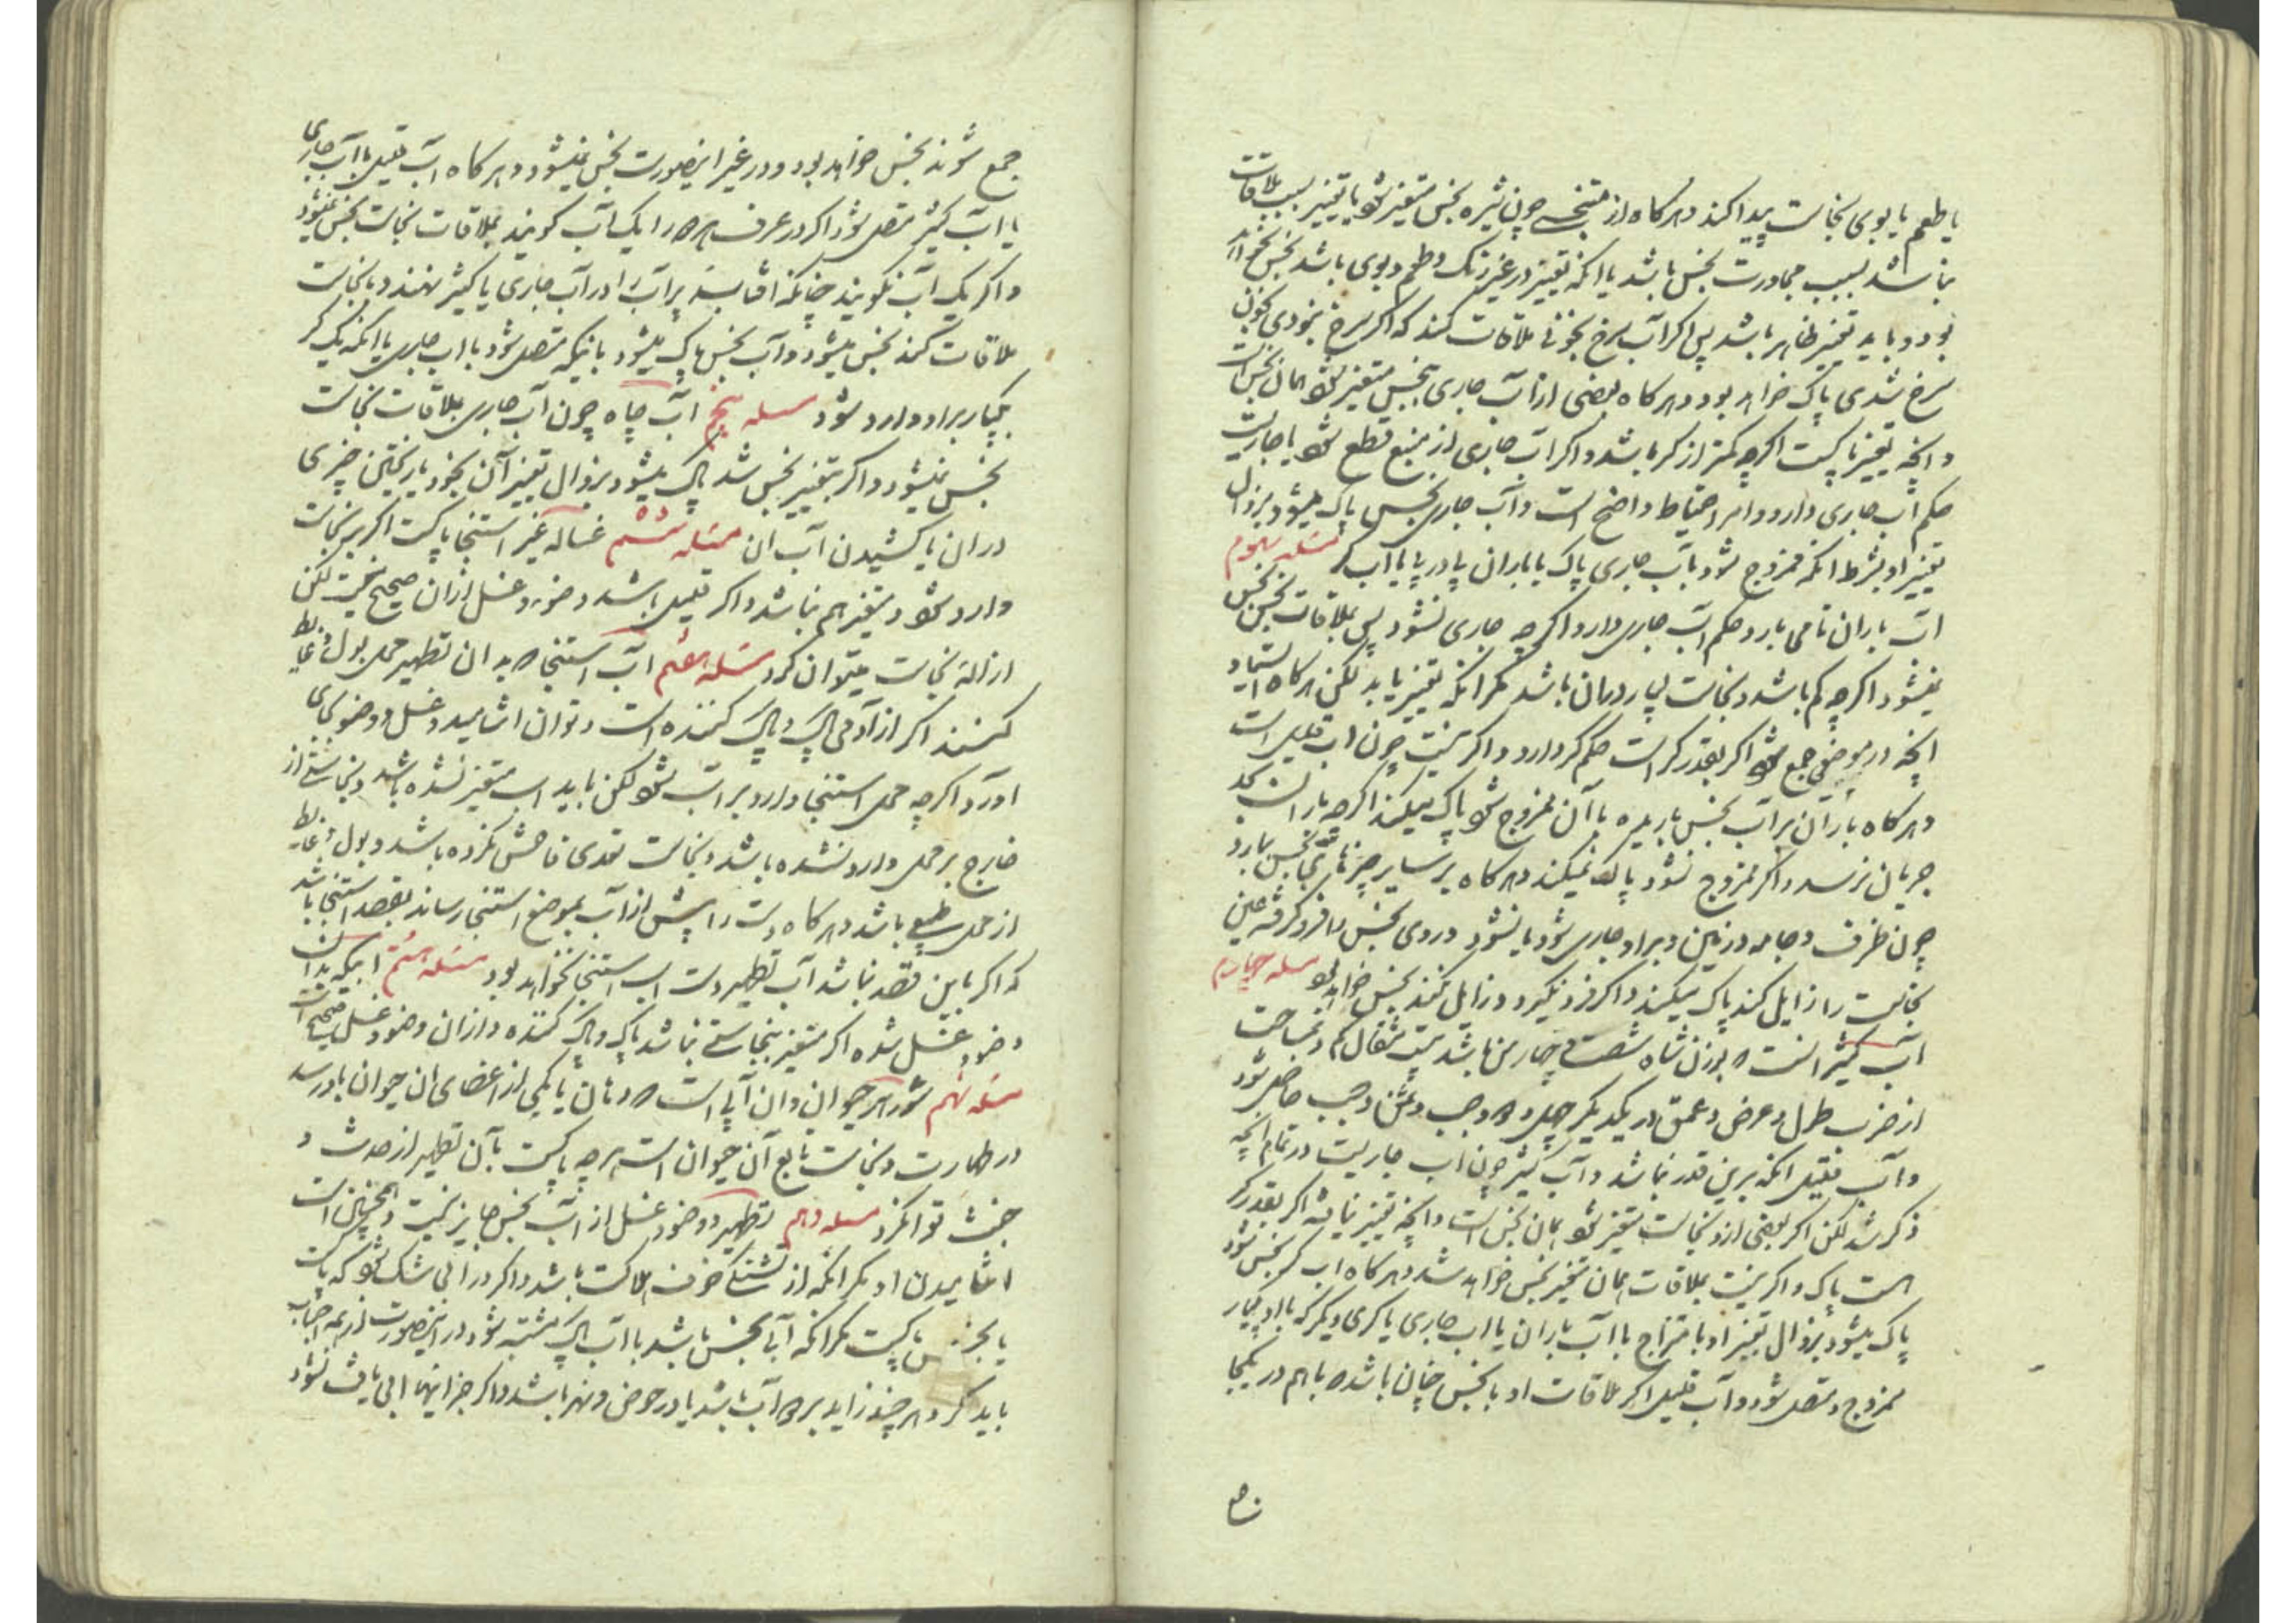 یا طعم یا بوی نجاست پیدا کند و هرکاه از متنجسی چون شیره نجس متغیر شود یا تغییر بسبب ملاقات
نباشد بسبب مجاورت نجس باشد یا انکه تغییر در غیر رنک و طعم و بوی باشد نجس نخواهد
بود و باید تغییر ظاهر باشد پس اکر آب سرخ بخونی ملاقات کند که اکر سرخ نبودی بخون
سرخ شدی پاک خواهد بود و هرکاه بعضی از آب جاری بنجس متغیر شود همان نجس است
و انچه تغییر نا پاکست اکرچه کمتر از کر باشد و اکر آب جاری از منبع قطع شود یا جاریست
حکم آب جاری دارد و امر احتیاط واضح است و آب جاری نجس پاک میشود بزوال
تغییر او بشرط انکه ممزوج شود بآب جاری پاک یا باران پا در پا یا آب کر مسئله سوم
آب باران تا می بارد حکم آب جاری دارد اکرچه جاری نشود پس بملاقات نجس نجس
نمیشود اکرچه کم باشد و نجاست بسیار و همان باشد مکر انکه تغییر یابد لکن هرکاه ایستاد
انچه در موضعی جمع شود اکر بقدر کر است حکم کر دارد و اکر نیست چون آب قلیل است
و هرکاه باران بر آب نجس باریده با آن ممزوج شود پاک میکند اکرچه باران بحد
جریان نرسد و اکر ممزوج نشود پاک نمیکند و هرکاه بر سایر چیزهای نجس ببارد
چون ظرف و جامه و زمین و بر او جاری شود یا نشود و روی نجس را فرو کرفته عین
نجاست را زایل کند پاک میکند و اکر فرو نکیرد و زایل نکند نجس خواهد بود مسئله چهارم
آب کثیر انست که بوزن شاه شصت و چهار من باشد بیست مثقال کم و بمساحت
از ضرب طول و عرض و عمق در یکدیکر چهل و دو وجب و هفت ثمن وجب حاصل شود
و آب قلیل انکه برین قدر نباشد و آب کثیر چون آب جاریست در تمام انچه
ذکر شد لکن اکر بعضی از او بنجاست متغیر شود همان نجس است و انچه تغییر نیافته اکر بقدر کر
است پاک و اکر نیست بملاقات همان متغیر نجس خواهد شد و هرکاه آب کر نجس شود
پاک میشود بزوال تغییر او با امتزاج با آب باران یا آب جاری یا کری دیکر که با او یکبار
ممزوج و متصل شود و آب قلیل اکر ملاقات او با نجس چنان باشد که با هم در یکجا
جمع شوند نجس خواهد بود و در غیر اینصورت نجس نمیشود و هرکاه آب قلیل با آب جاری
یا آب کثیر متصل شود اکر در عرف هر دو را یک آب کویند بملاقات نجاست نجس نمیشود
و اکر یک آب نکویند چنانکه افتابه پر آب را در آب جاری یا کثیر نهند و با نجاست
ملاقات کند نجس میشود و آب نجس پاک میشود بانکه متصل شود با آب جاری یا انکه یک کر
یکبار بر او وارد شود مسئله پنجم آب چاه چون آب جاری بملاقات نجاست
نجس نمیشود و اکر بتغییر نجس شد پاک میشود بزوال تغییر آن بخود یا ریختن چیزی
در ان یا کشیدن آب ان مسئله ششم غساله غیر استنجا پاکست اکر بر نجاست
وارد شود و متغیر هم نباشد و اکر قلیل باشد وضو و غسل از ان صحیح نیست لکن
ازالهٔ نجاست میتوان کرد مسئله هفتم آب استنجا که بدان تطهیر محل بول و غایط
کنند اکر از آدمی پاک و پاک کننده است و توان اشامید و غسل و وضو بجای
آورد اکرچه محل استنجا وارد بر آب شود لکن باید آب متغیر نشده باشد و نجاستی از
خارج بر محل وارد نشده باشد و نجاست تعدی فاحش نکرده باشد و بول و غایط
از محل طبیعی باشد و هرکاه دست را پیش از آب بموضع استنجا رساند بقصد استنجا باشد
که اکر باین قصد نباشد آب تطهیر دست آب استنجا نخواهد بود مسئله هشتم آبیکه بدان
وضو و غسل شده اکر متغیر بنجاستی نباشد پاک و پاک کننده و از ان وضو و غسل صحیح است
مسئله نهم سؤر هر حیوان و ان آبی است که دهان یا یکی از اعضای ان حیوان باو رسد
در طهارت و نجاست تابع آن حیوان است هرچه پاکست بآن تطهیر از حدث و
خبث توان کرد مسئله دهم تطهیر و وضو و غسل از آب نجس جایز نیست و همچنین است
اشامیدن او مکر انکه از تشنکی خوف هلاکت باشد و اکر در آبی شک شود که پاکست
یا نجس پاکست مکر انکه آب نجس باشد با آب پاک مشتبه شود در اینصورت از همه اجتناب
باید کرد هر چند زاید بر دو آب باشد یا در حوض و نهر باشد و اکر جز اینها آبی یافت نشود